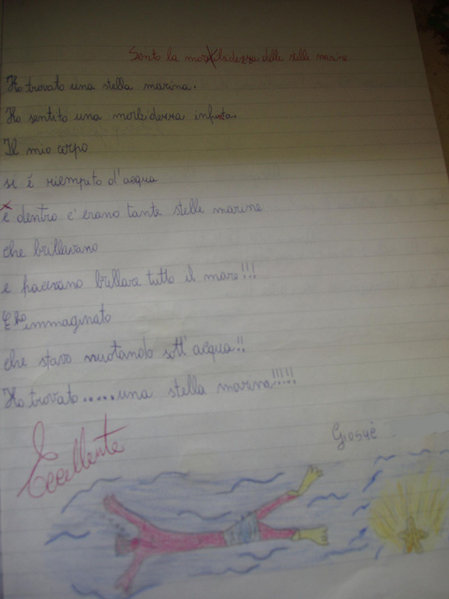 Sento la morbidezza delle stelle marine
Ho trovato una stella marina.
Ho sentito una morbidezza infinita.
Il mio corpo
si é riempito d'acqua
e dentro c'erano tante stelle marine
che brillavano
e facevano brillare tutto il mare!!!
E ho immaginato
che stavo nuotando sott'acqua!!
Ho trovato.....una stella marina!!!!!
Eccellente
Giosuè